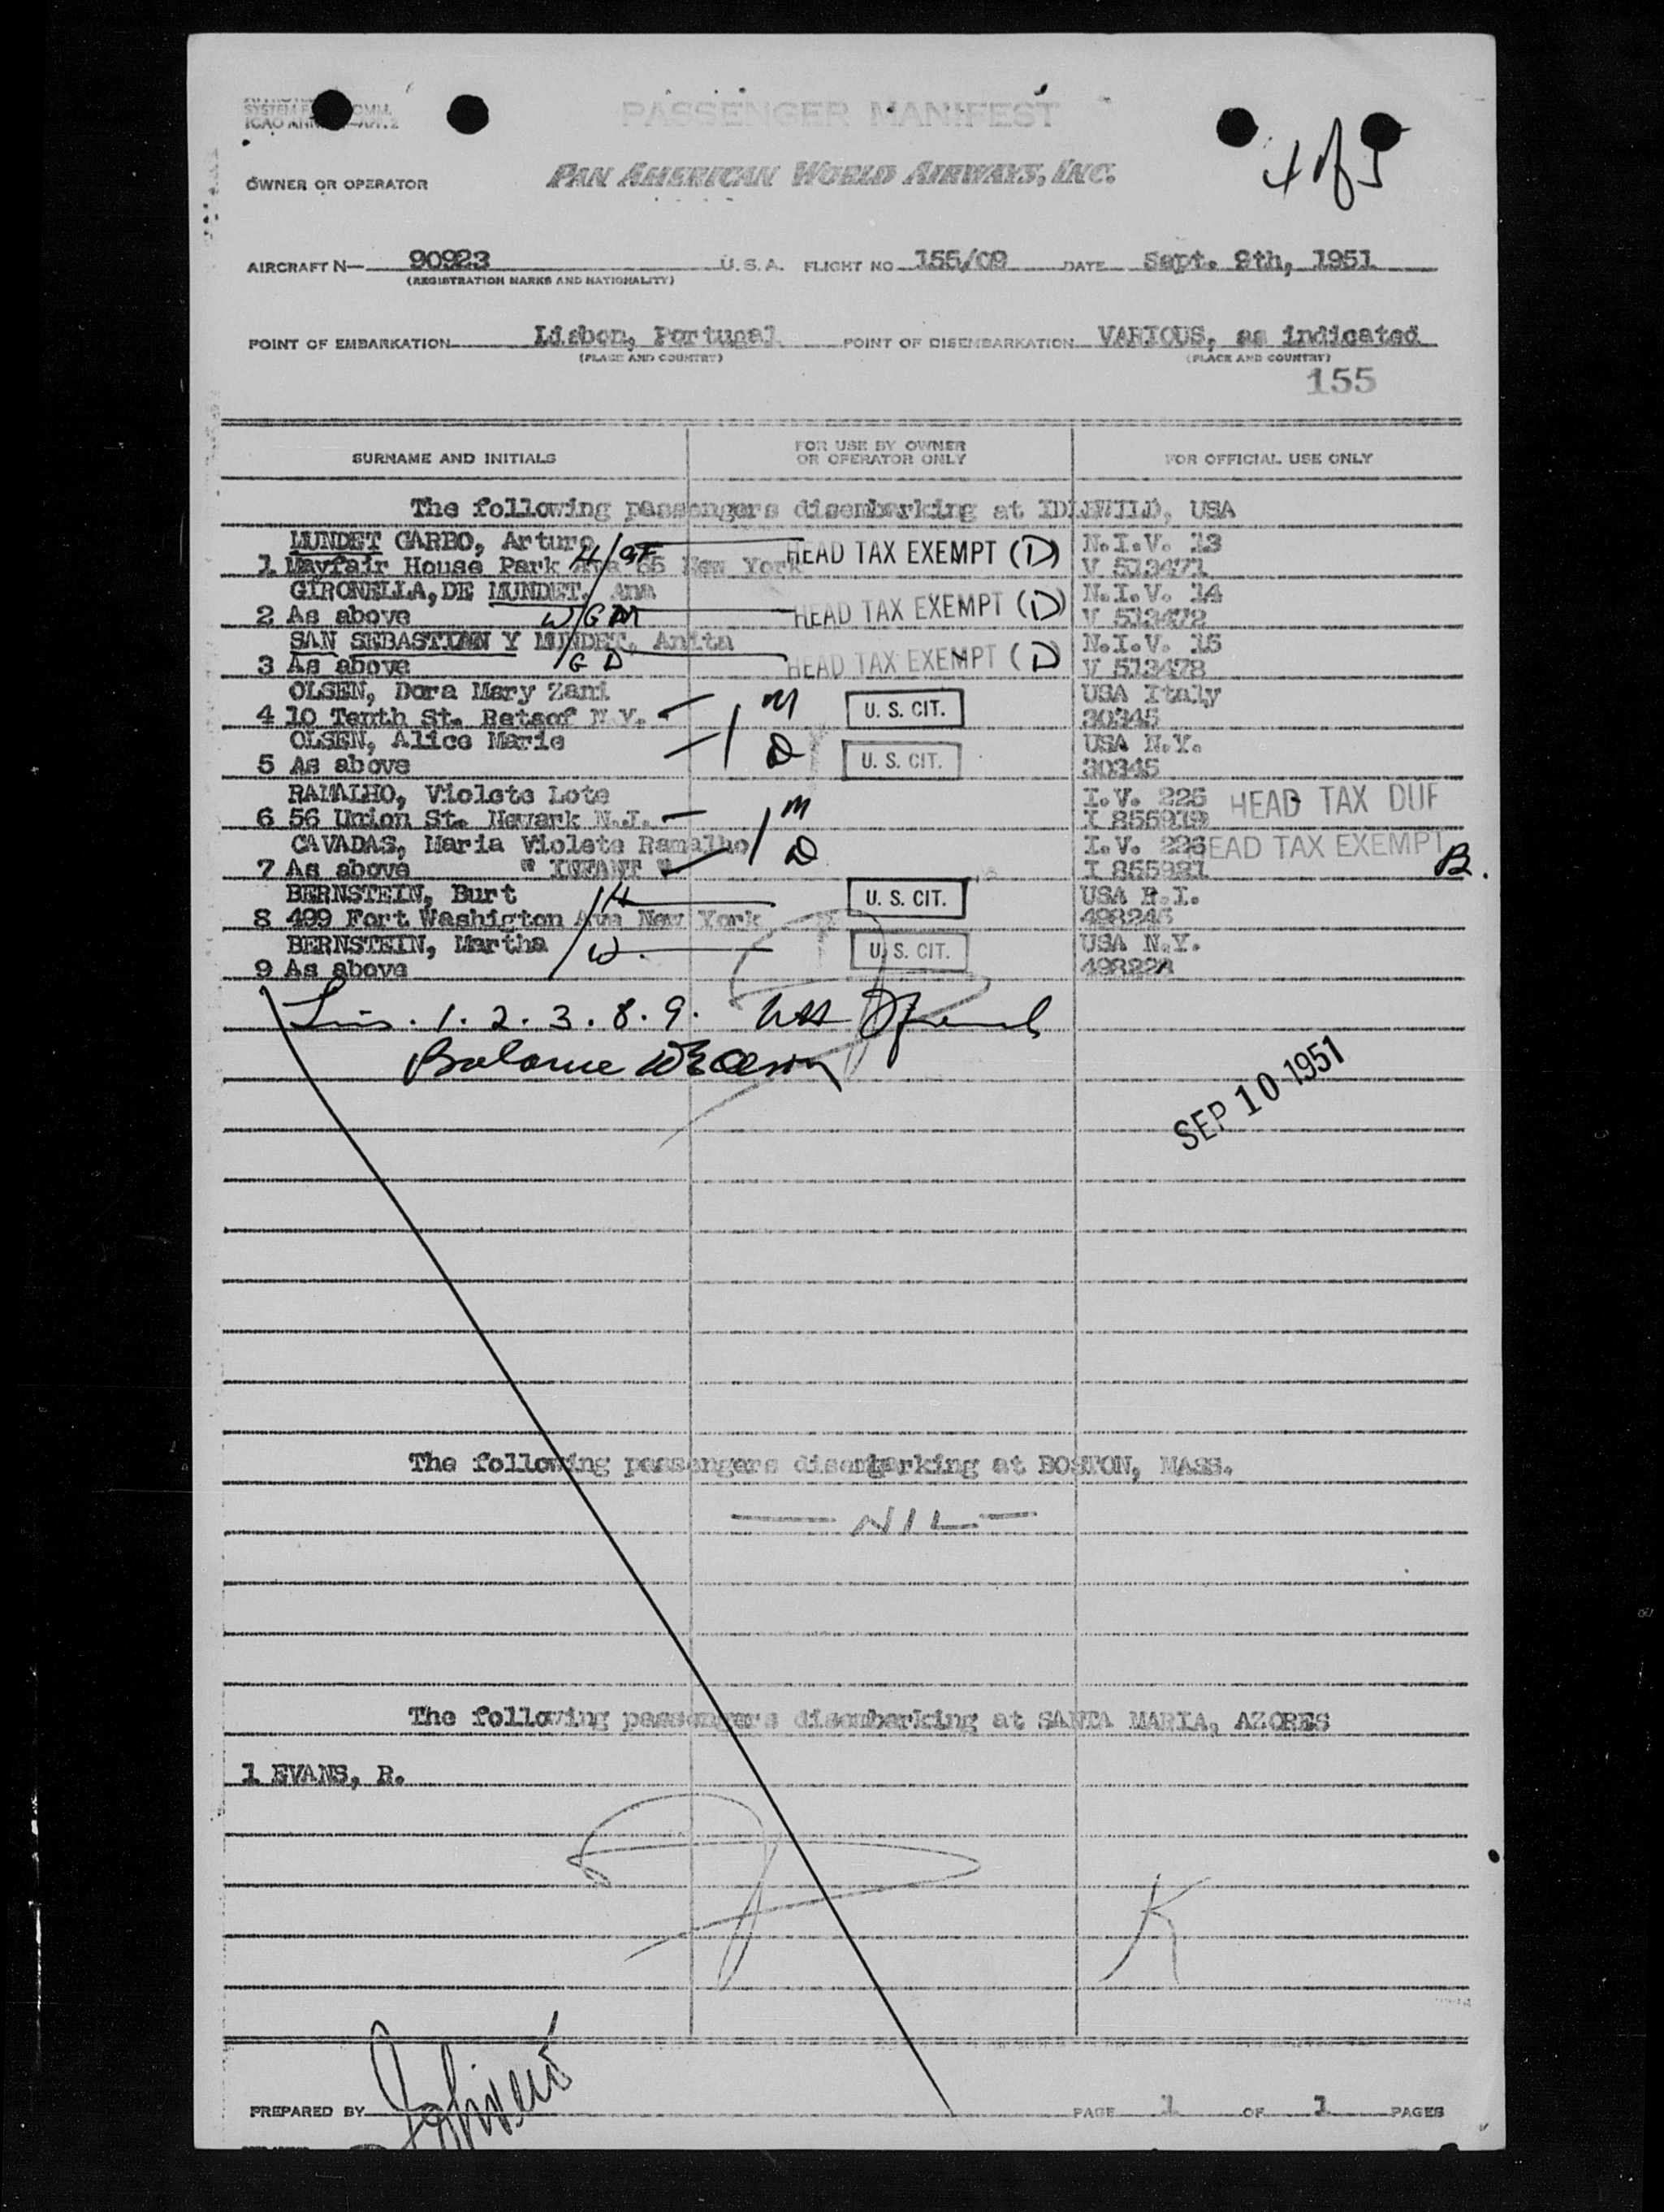 SYSTEM
ICAO
PASSENGER MANIFEST
4 of 5
OWNER OR OPERATOR
PAN AMERICAN WORLD AIRWAYS, INC.
AIRCRAFT N— 90923 U.S.A. FLIGHT NO 155/09 DATE Sept. 9th, 1951
(REGISTRATION MARKS AND NATIONALITY)
POINT OF EMBARKATION Lisbon, Portugal POINT OF DISEMBARKATION VARIOUS, as indicated
(PLACE AND COUNTRY) (PLACE AND COUNTRY)
155
SURNAME AND INITIALS FOR USE BY OWNER OR OPERATOR ONLY FOR OFFICIAL USE ONLY
The following passengers disembarking at IDLEWILD, USA
MUNDET CARBO, Arturo H/GF HEAD TAX EXEMPT (D) N.I.V. 13
1 Mayfair House Park Ave 65 New York V 513471
GIRONELLA, DE MUNDET, Ana N.I.V. 14
2 As above W/GM HEAD TAX EXEMPT (D) V 513472
SAN SEBASTIAN Y MUNDET, Anita N.I.V. 15
3 As above /G D HEAD TAX EXEMPT (D) V 513478
OLSEN, Dora Mary Zani M U. S. CIT. USA Italy
4 10 Tenth St. Retsof N.Y. 30345
OLSEN, Alice Marie D U. S. CIT. USA N.Y.
5 As above 30345
RAMALHO, Violete Lote M I.V. 225 HEAD TAX DUE
6 56 Union St. Newark N.J. I
CAVADAS, Maria Violete Ramalho D I.V. 226 HEAD TAX EXEMPT
7 As above " INFANT " I 855921 B.
BERNSTEIN, Burt /H U. S. CIT. USA R.I.
8 499 Fort Washigton Ave New York 498246
BERNSTEIN, Martha /W. U. S. CIT. USA N.Y.
9 As above 49822
Lin. 1. 2. 3. 8. 9.
Balance
SEP 10 1951
The following passengers disembarking at BOSTON, MASS.
— NIL —
The following passengers disembarking at SANTA MARIA, AZORES
1 EVANS, R.
K
PREPARED BY PAGE 1 OF 1 PAGES